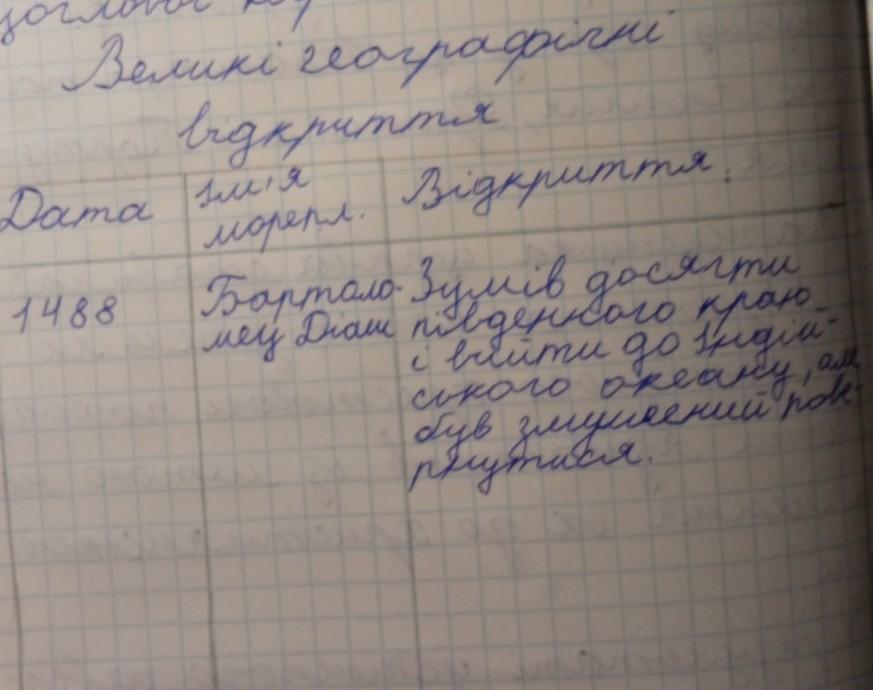 Великі географічні
відкриття
Дата
Ім'я
морепл.
Відкриття.
1488
Бартоло-
меу Діаш
Зумів досягти
південного краю
і вийти до Індій-
ського океану, але
був змушений пове-
рнутися.